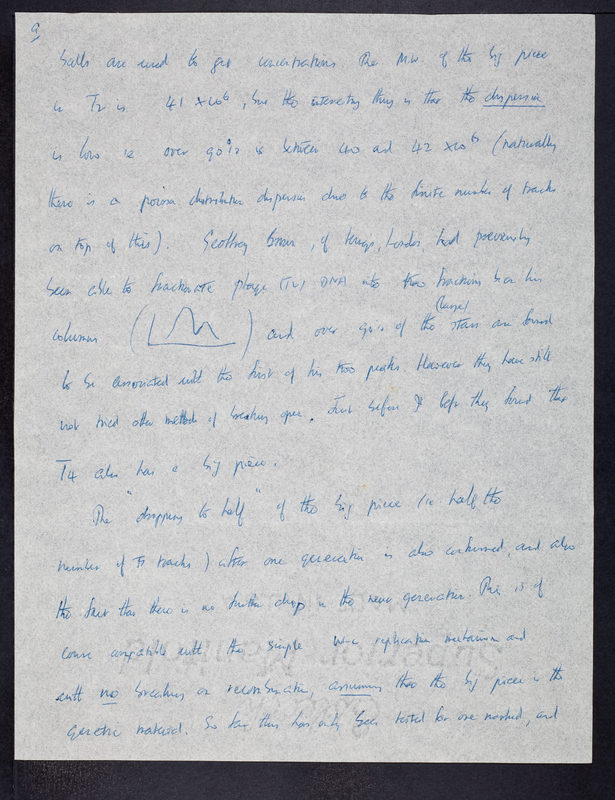 9
Salts are used to get concentrations The M.W. of the big piece
in T2 is 41 × 10⁶, but the interesting thing is that the dispersion
is low ie over 90% is between 40 and 42 × 10⁶ (naturally
there is a poisson distribution dispersion due to the finite number of tracks
on top of this). Geoffrey Brown, of Kings, London, had previously
been able to fractionate phage (T2) DNA into two fractions on his
columns ( ) and over 90% of the (large) stars are found
to be associated with the first of his two peaks. However they have still
not tried other methods of breaking open. Just before I left they found that
T4 also has a big piece.
The "dropping to half" of the big piece (ie half the
number of tracks) after one generation is also confirmed, and also
the fact that there is no further drop in the next generation. This is of
course compatible with the simple replication mechanism and
with no breaking or recombination, assuming that the big piece is the
genetic material. So far this has only been tested for one method, and